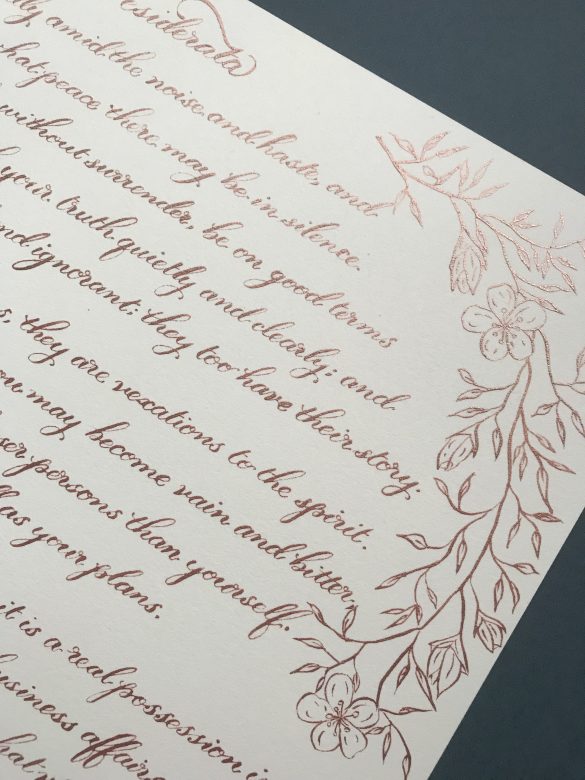 esiderata
ly amid the noise and haste, and
hat peace there may be in silence.
without surrender, be on good terms
your truth quietly and clearly; and
nd ignorant; they too have their story.
s, they are vexations to the spirit.
ou may become vain and bitter,
ser persons than yourself.
as your plans.
it is a real possession i
usiness affairs
hat